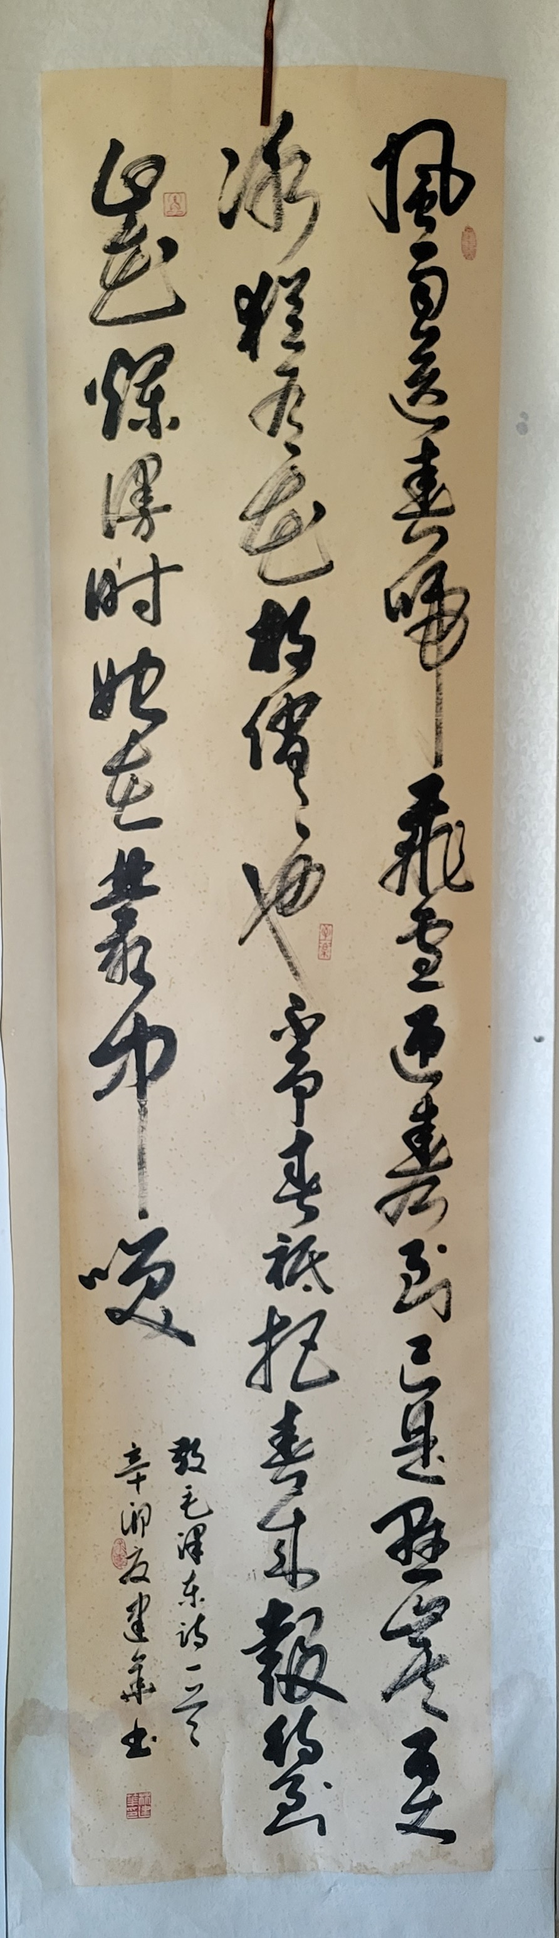 風雨送春歸飛雪迎春到已是懸崖百丈
冰猶有花枝俏〻也不爭春祇把春來報待到
山花爛漫時她在叢中咲
毛澤东诗一首
辛卯夏建華书